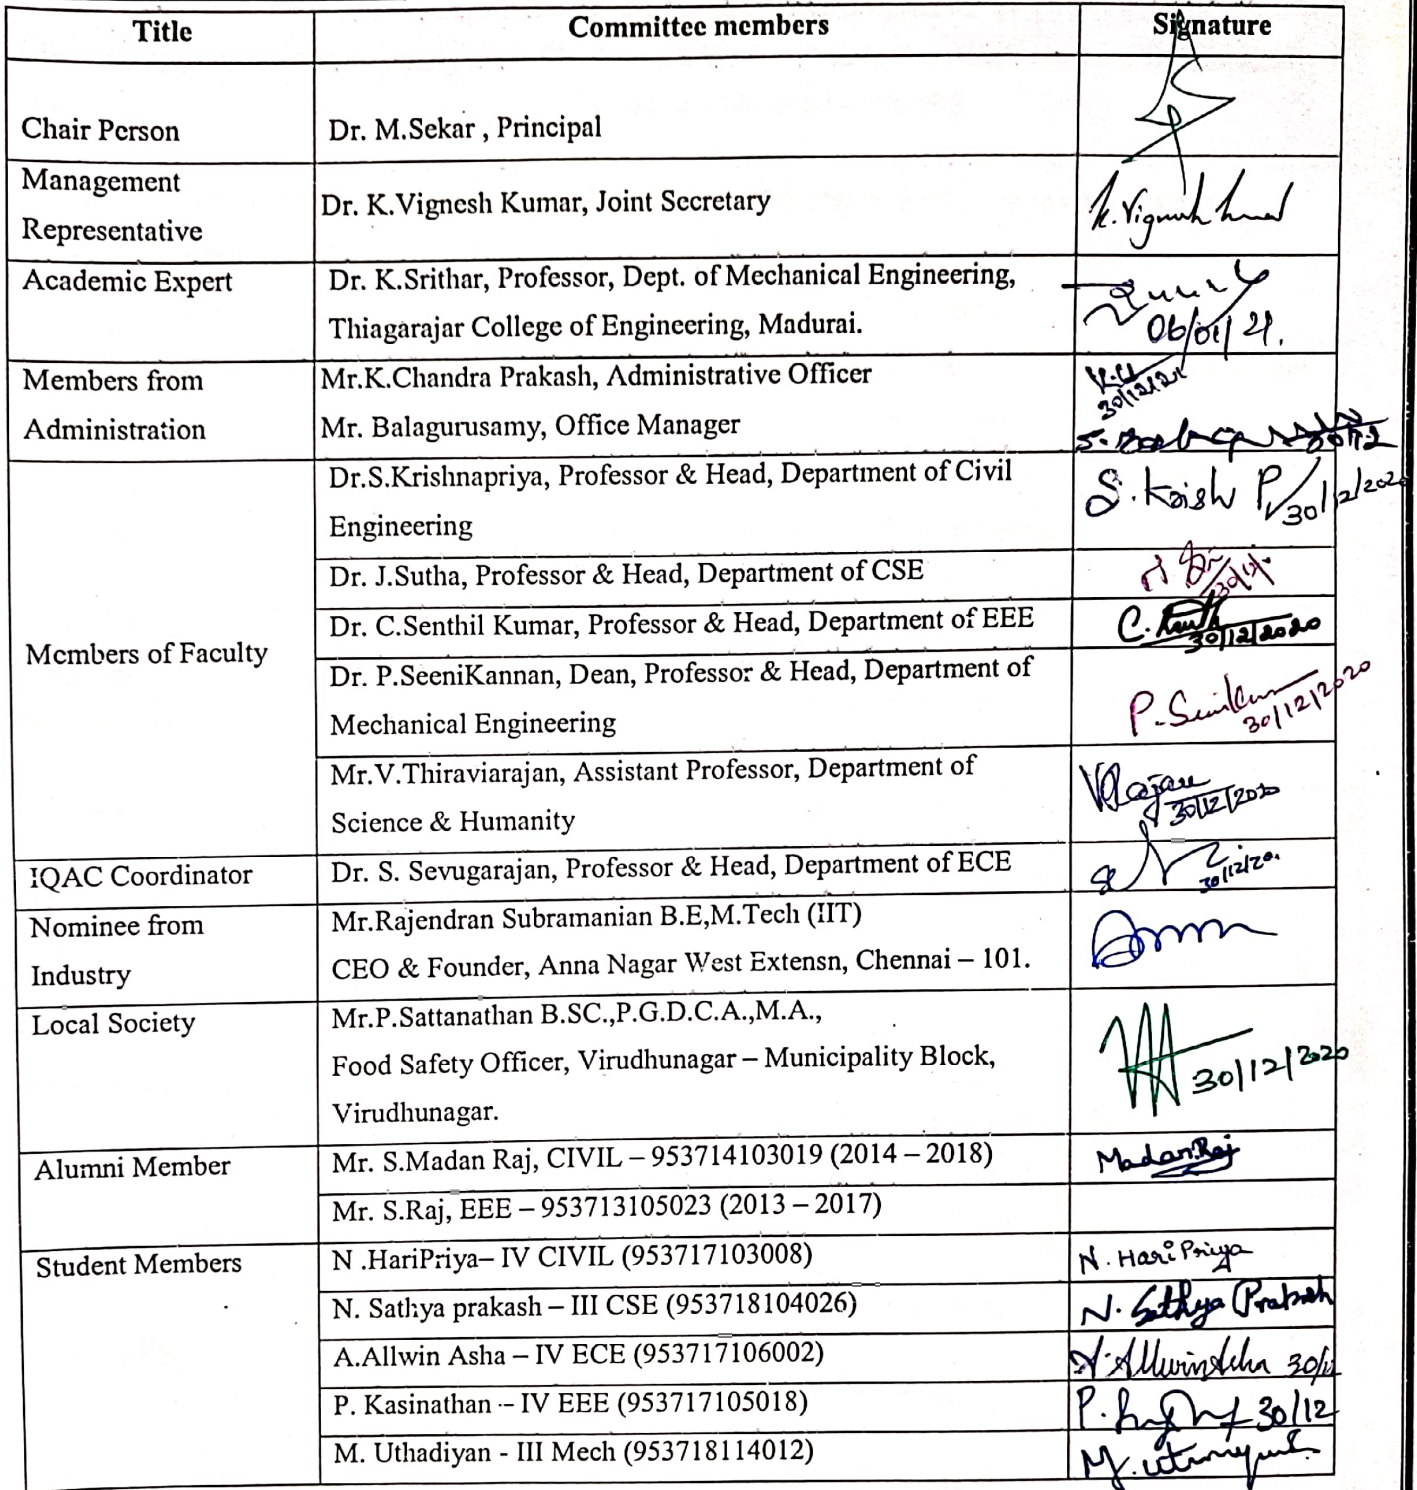 Title Committee members Signature
Chair Person Dr. M.Sekar , Principal
Management
Representative
Dr. K.Vignesh Kumar, Joint Secretary K.Vignesh Kumar
Academic Expert Dr. K.Srithar, Professor, Dept. of Mechanical Engineering,
Thiagarajar College of Engineering, Madurai. 06/01/21.
Members from Mr.K.Chandra Prakash, Administrative Officer
30/12/21
Administration Mr. Balagurusamy, Office Manager
30/12
Dr.S.Krishnapriya, Professor & Head, Department of Civil
Engineering
S.Krish P 30/12/2020
Dr. J.Sutha, Professor & Head, Department of CSE
Dr. C.Senthil Kumar, Professor & Head, Department of EEE
30/12/2020
Members of Faculty
Dr. P.SeeniKannan, Dean, Professor & Head, Department of
Mechanical Engineering
30/12/2020
Mr.V.Thiraviarajan, Assistant Professor, Department of
Science & Humanity
30/12/2020
IQAC Coordinator Dr. S. Sevugarajan, Professor & Head, Department of ECE
30/12/20.
Nominee from Mr.Rajendran Subramanian B.E,M.Tech (IIT)
Industry CEO & Founder, Anna Nagar West Extensn, Chennai – 101.
Local Society Mr.P.Sattanathan B.SC.,P.G.D.C.A.,M.A.,
Food Safety Officer, Virudhunagar – Municipality Block, 30/12/2020
Virudhunagar.
Alumni Member Mr. S.Madan Raj, CIVIL – 953714103019 (2014 – 2018) Madan.Raj
Mr. S.Raj, EEE – 953713105023 (2013 – 2017)
Student Members N .HariPriya– IV CIVIL (953717103008) N. HariPriya
N. Sathya prakash – III CSE (953718104026) N. Sathya Prakash
A.Allwin Asha – IV ECE (953717106002) A.Allwin Asha 30/12
P. Kasinathan -- IV EEE (953717105018) 30/12
M. Uthadiyan - III Mech (953718114012)